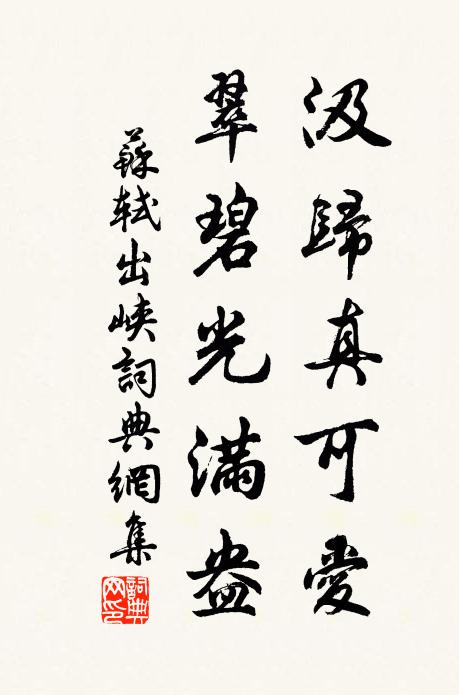 汲歸真可愛
翠碧光滿盎
蘇軾出峽詞典網集
詞典網印